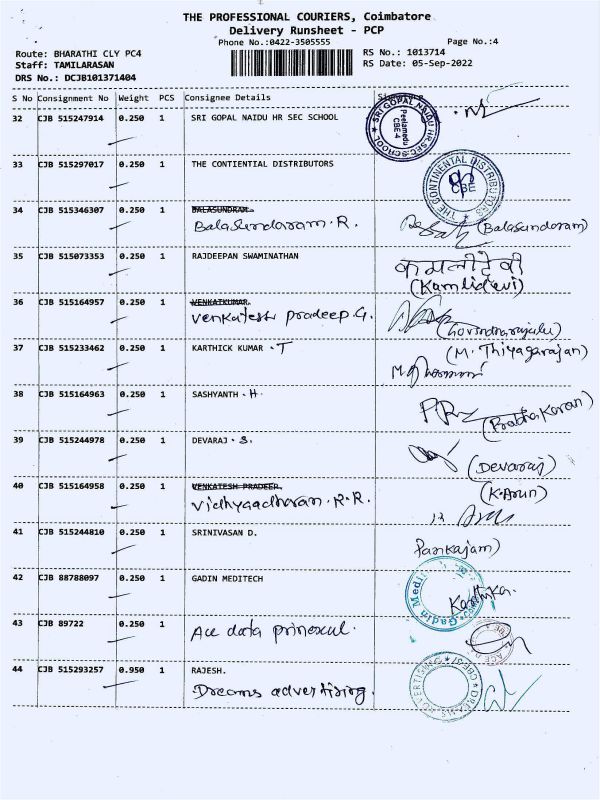 THE PROFESSIONAL COURIERS, Coimbatore
Delivery Runsheet - PCP
Phone No.:0422-3505555 Page No.:4
Route: BHARATHI CLY PC4 RS No.: 1013714
Staff: TAMILARASAN RS Date: 05-Sep-2022
DRS No.: DCJB101371404
S No Consignment No Weight PCS Consignee Details Signature
32 CJB 515247914 0.250 1 SRI GOPAL NAIDU HR SEC SCHOOL
SRI GOPAL NAIDU HR SEC SCHOOL
Peelamedu
CBE-4
33 CJB 515297017 0.250 1 THE CONTIENTIAL DISTRIBUTORS
THE CONTINENTAL DISTRIBUTORS
CBE
34 CJB 515346307 0.250 1 BALASUNDRAM.
Balasundaram. R. (Balasundaram)
35 CJB 515073353 0.250 1 RAJDEEPAN SWAMINATHAN कमलीदेवी
(Kamlidevi)
36 CJB 515164957 0.250 1 VENKATKUMAR.
Venkatesh pradeep G. (Govindharajalu)
37 CJB 515233462 0.250 1 KARTHICK KUMAR . T (M. Thiyagarajan)
38 CJB 515164963 0.250 1 SASHYANTH . H (Prabhakaran)
39 CJB 515244978 0.250 1 DEVARAJ . S. (Devaraj)
40 CJB 515164958 0.250 1 VENKATESH PRADEEP. (K. Arun)
Vidhyaadharan. R. R.
41 CJB 515244810 0.250 1 SRINIVASAN D. Pankajam)
42 CJB 88788097 0.250 1 GADIN MEDITECH
Gadin Medi Karthika.
43 CJB 89722 0.250 1
Ace data
44 CJB 515293257 0.950 1 RAJESH.
Dreams advertising.
DREAMS ADVERTISING CBE